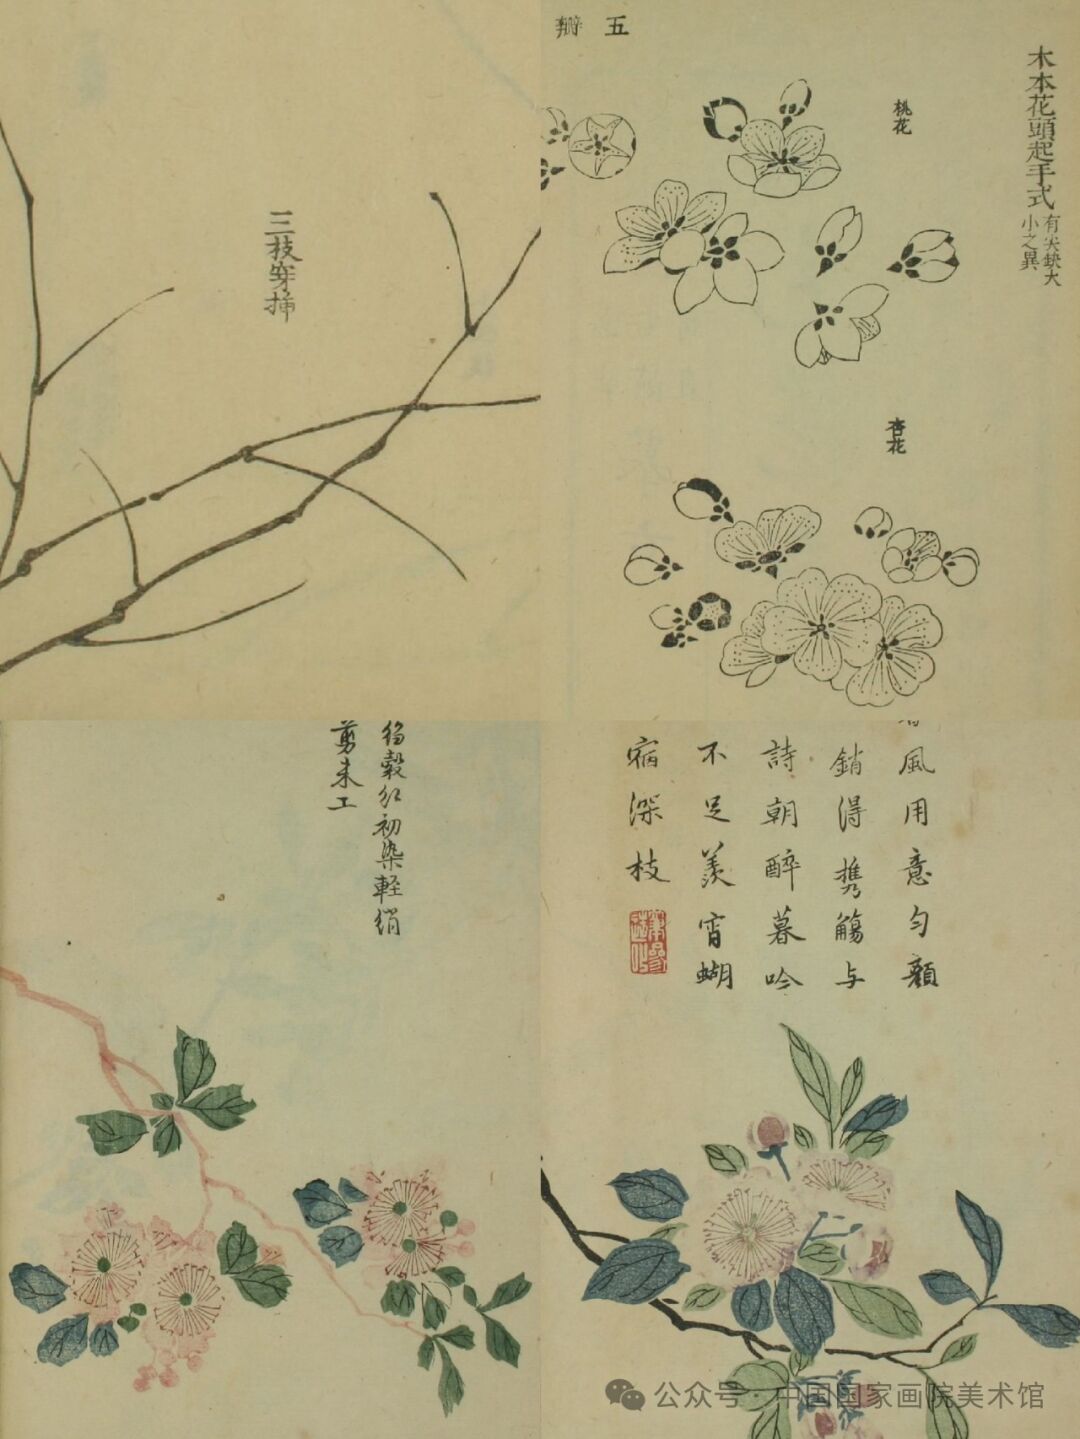 三枝穿揷
五瓣
木本花頭起手式
有尖缺大
小之異
桃花
杏花
縐縠紅初染軽綃
剪未工
風用意匀顔
銷得携觴与
詩朝醉暮吟
不足羨宵蝴
宿深枝
公众号 · 中国国家画院美术馆